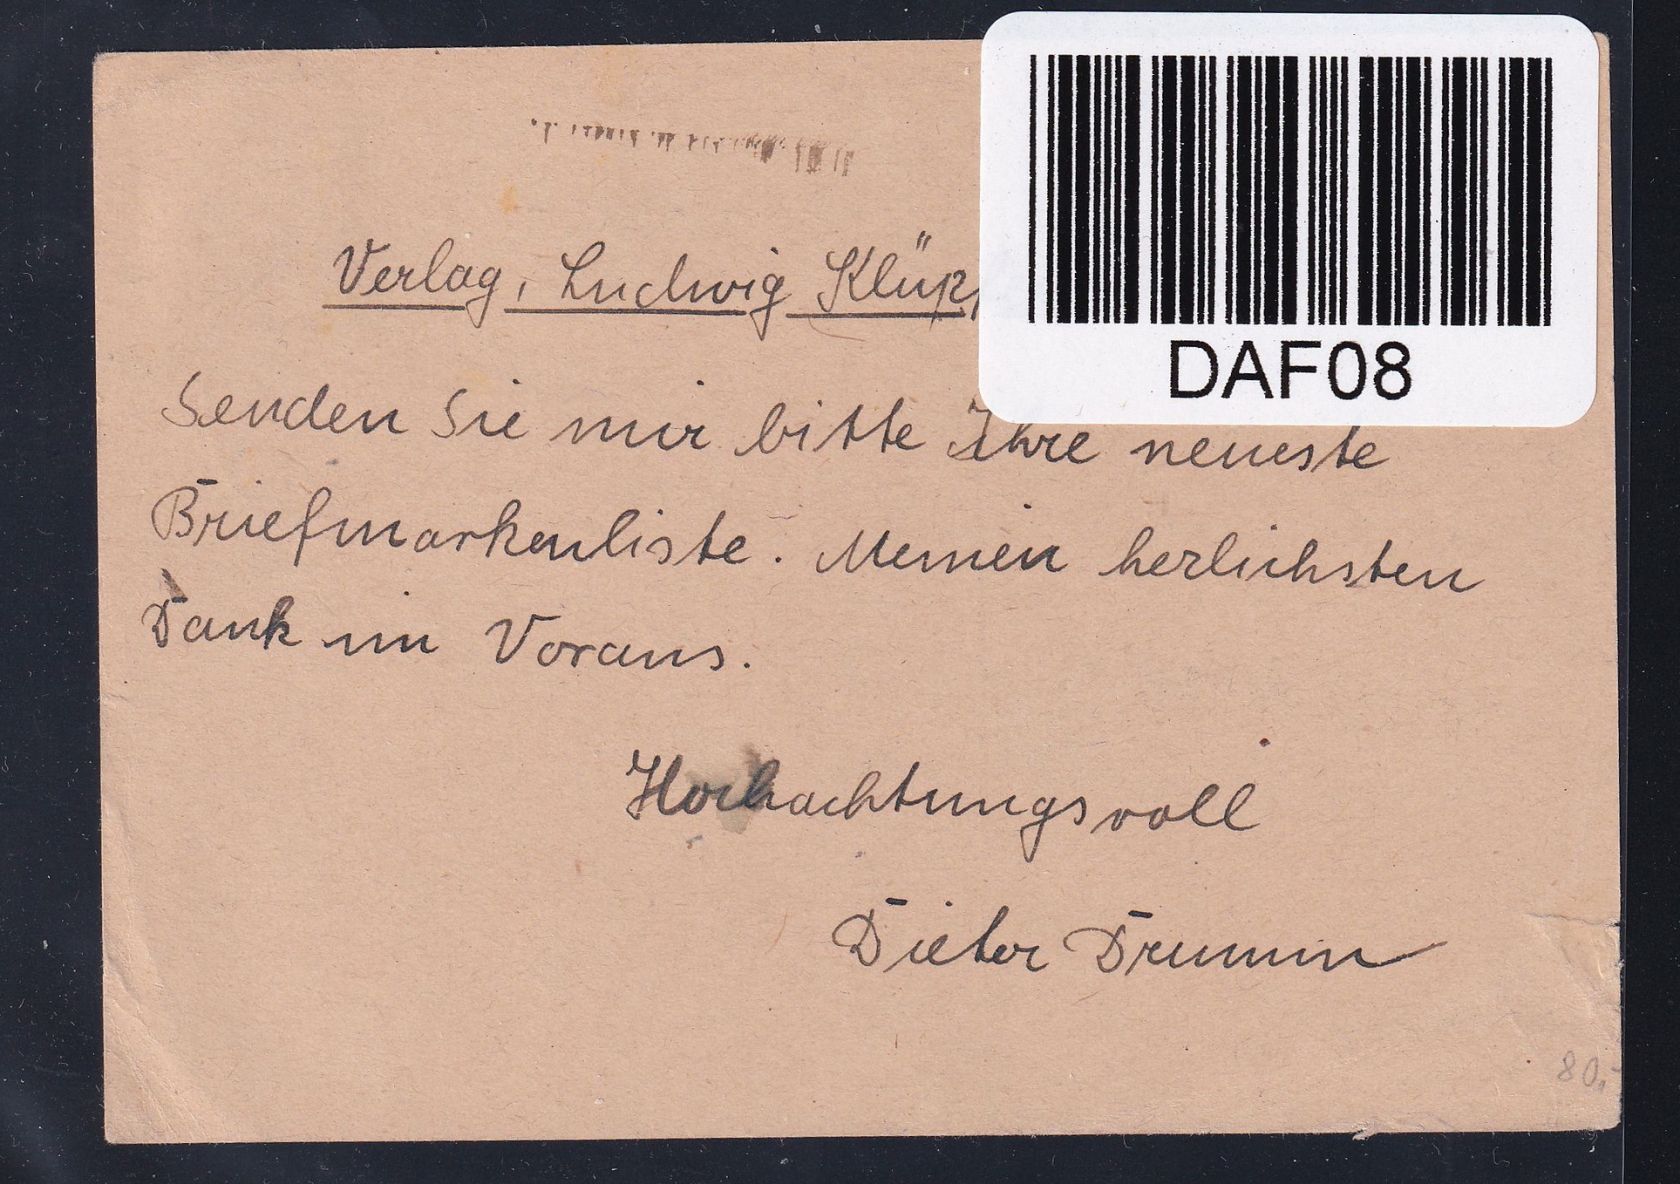 Verlag, Ludwig
DAF08
Senden Sie mir bitte Ihre neueste
Briefmarkenliste. Meinen herlichsten
Dank im Voraus.
Hochachtungsvoll
Dieter Drumm
80,-